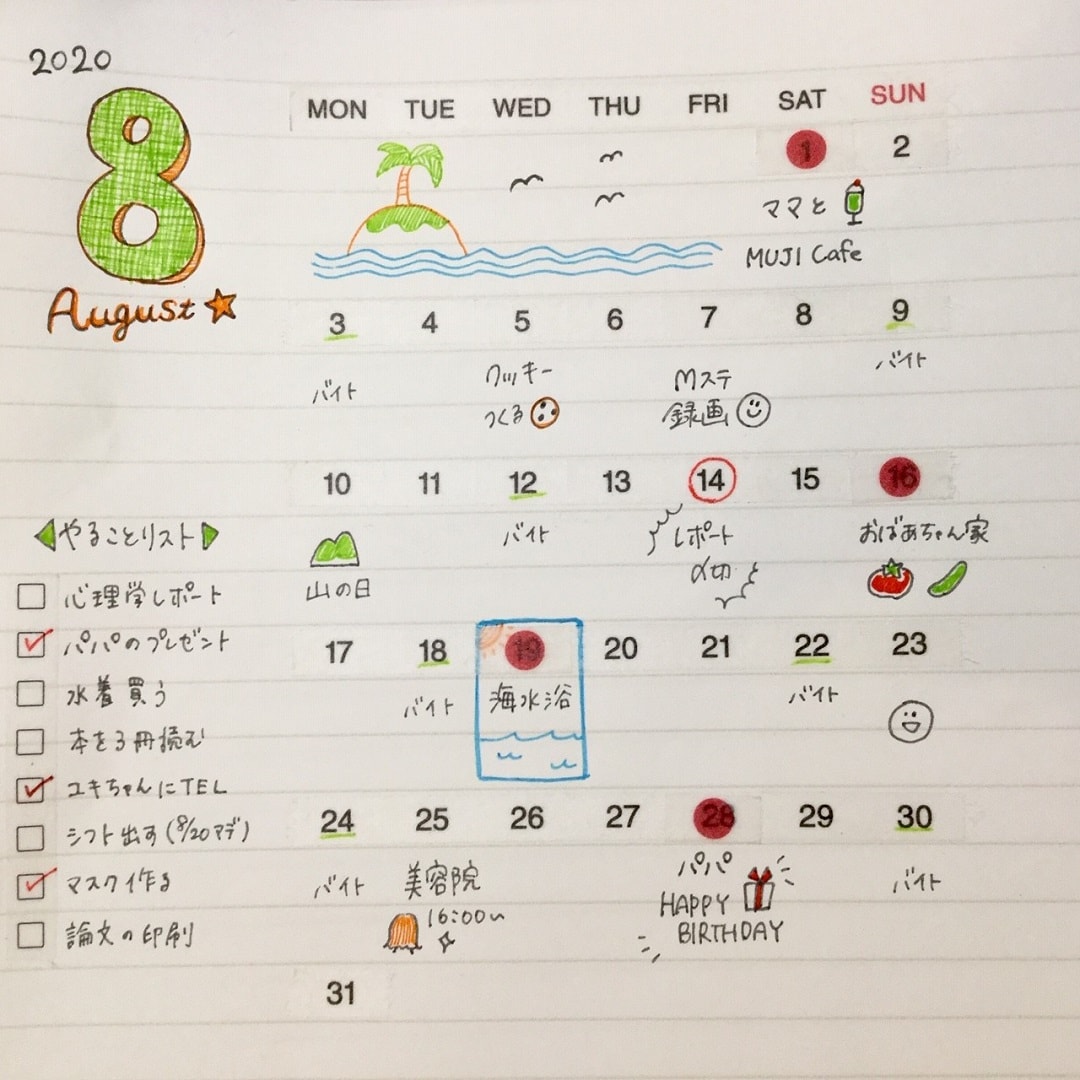 2020
8
August
MON TUE WED THU FRI SAT SUN
1 2
ママと
MUJI Cafe
3 4 5 6 7 8 9
バイト
クッキー
つくる
Mステ
録画
バイト
10 11 12 13 14 15 16
山の日
バイト
レポート
〆切
おばあちゃん家
17 18 19 20 21 22 23
バイト
海水浴
バイト
24 25 26 27 28 29 30
バイト
美容院
16:00〜
パパ
HAPPY
BIRTHDAY
バイト
31
やることリスト
心理学レポート
パパのプレゼント
水着買う
本を3冊読む
ユキちゃんにTEL
シフト出す(8/20マデ)
マスク作る
論文の印刷